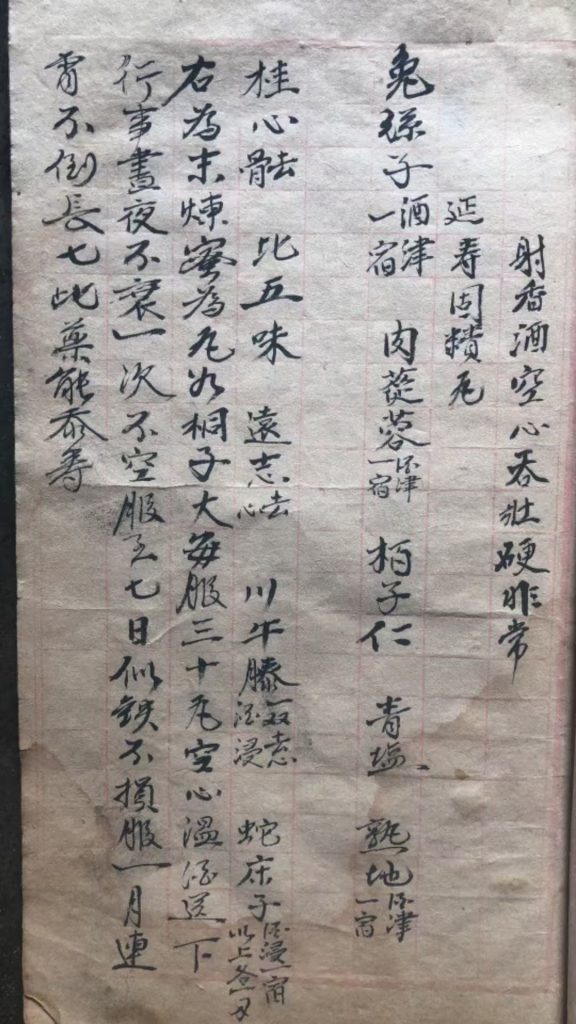 射香酒空心吞壮硬非常
延寿固精丸
兔孫子酒津一宿 肉蓯蓉酒津一宿 柏子仁 青塩 熟地酒津一宿
桂心 此五味 遠志去心 川牛膝酒浸 蛇床子酒浸一宿以上各
右為末煉蜜為丸如桐子大每服三十丸空心温酒送下
行事晝夜不衰一次不空服至七日似鉄不損服一月連
宵不倒長七此藥能添寿